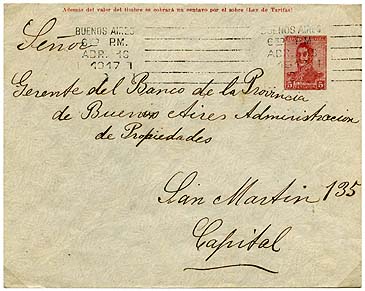 Además del valor del timbre se cobrará un centavo por el sobre (Ley de Tarifas)
BUENOS AIRES
6 PM.
ABR 16
1917
BUENOS AIRES
PM.
5
Señor
Gerente del Banco de la Provincia
de Buenos Aires Administracion
de Propiedades
San Martin 135
Capital